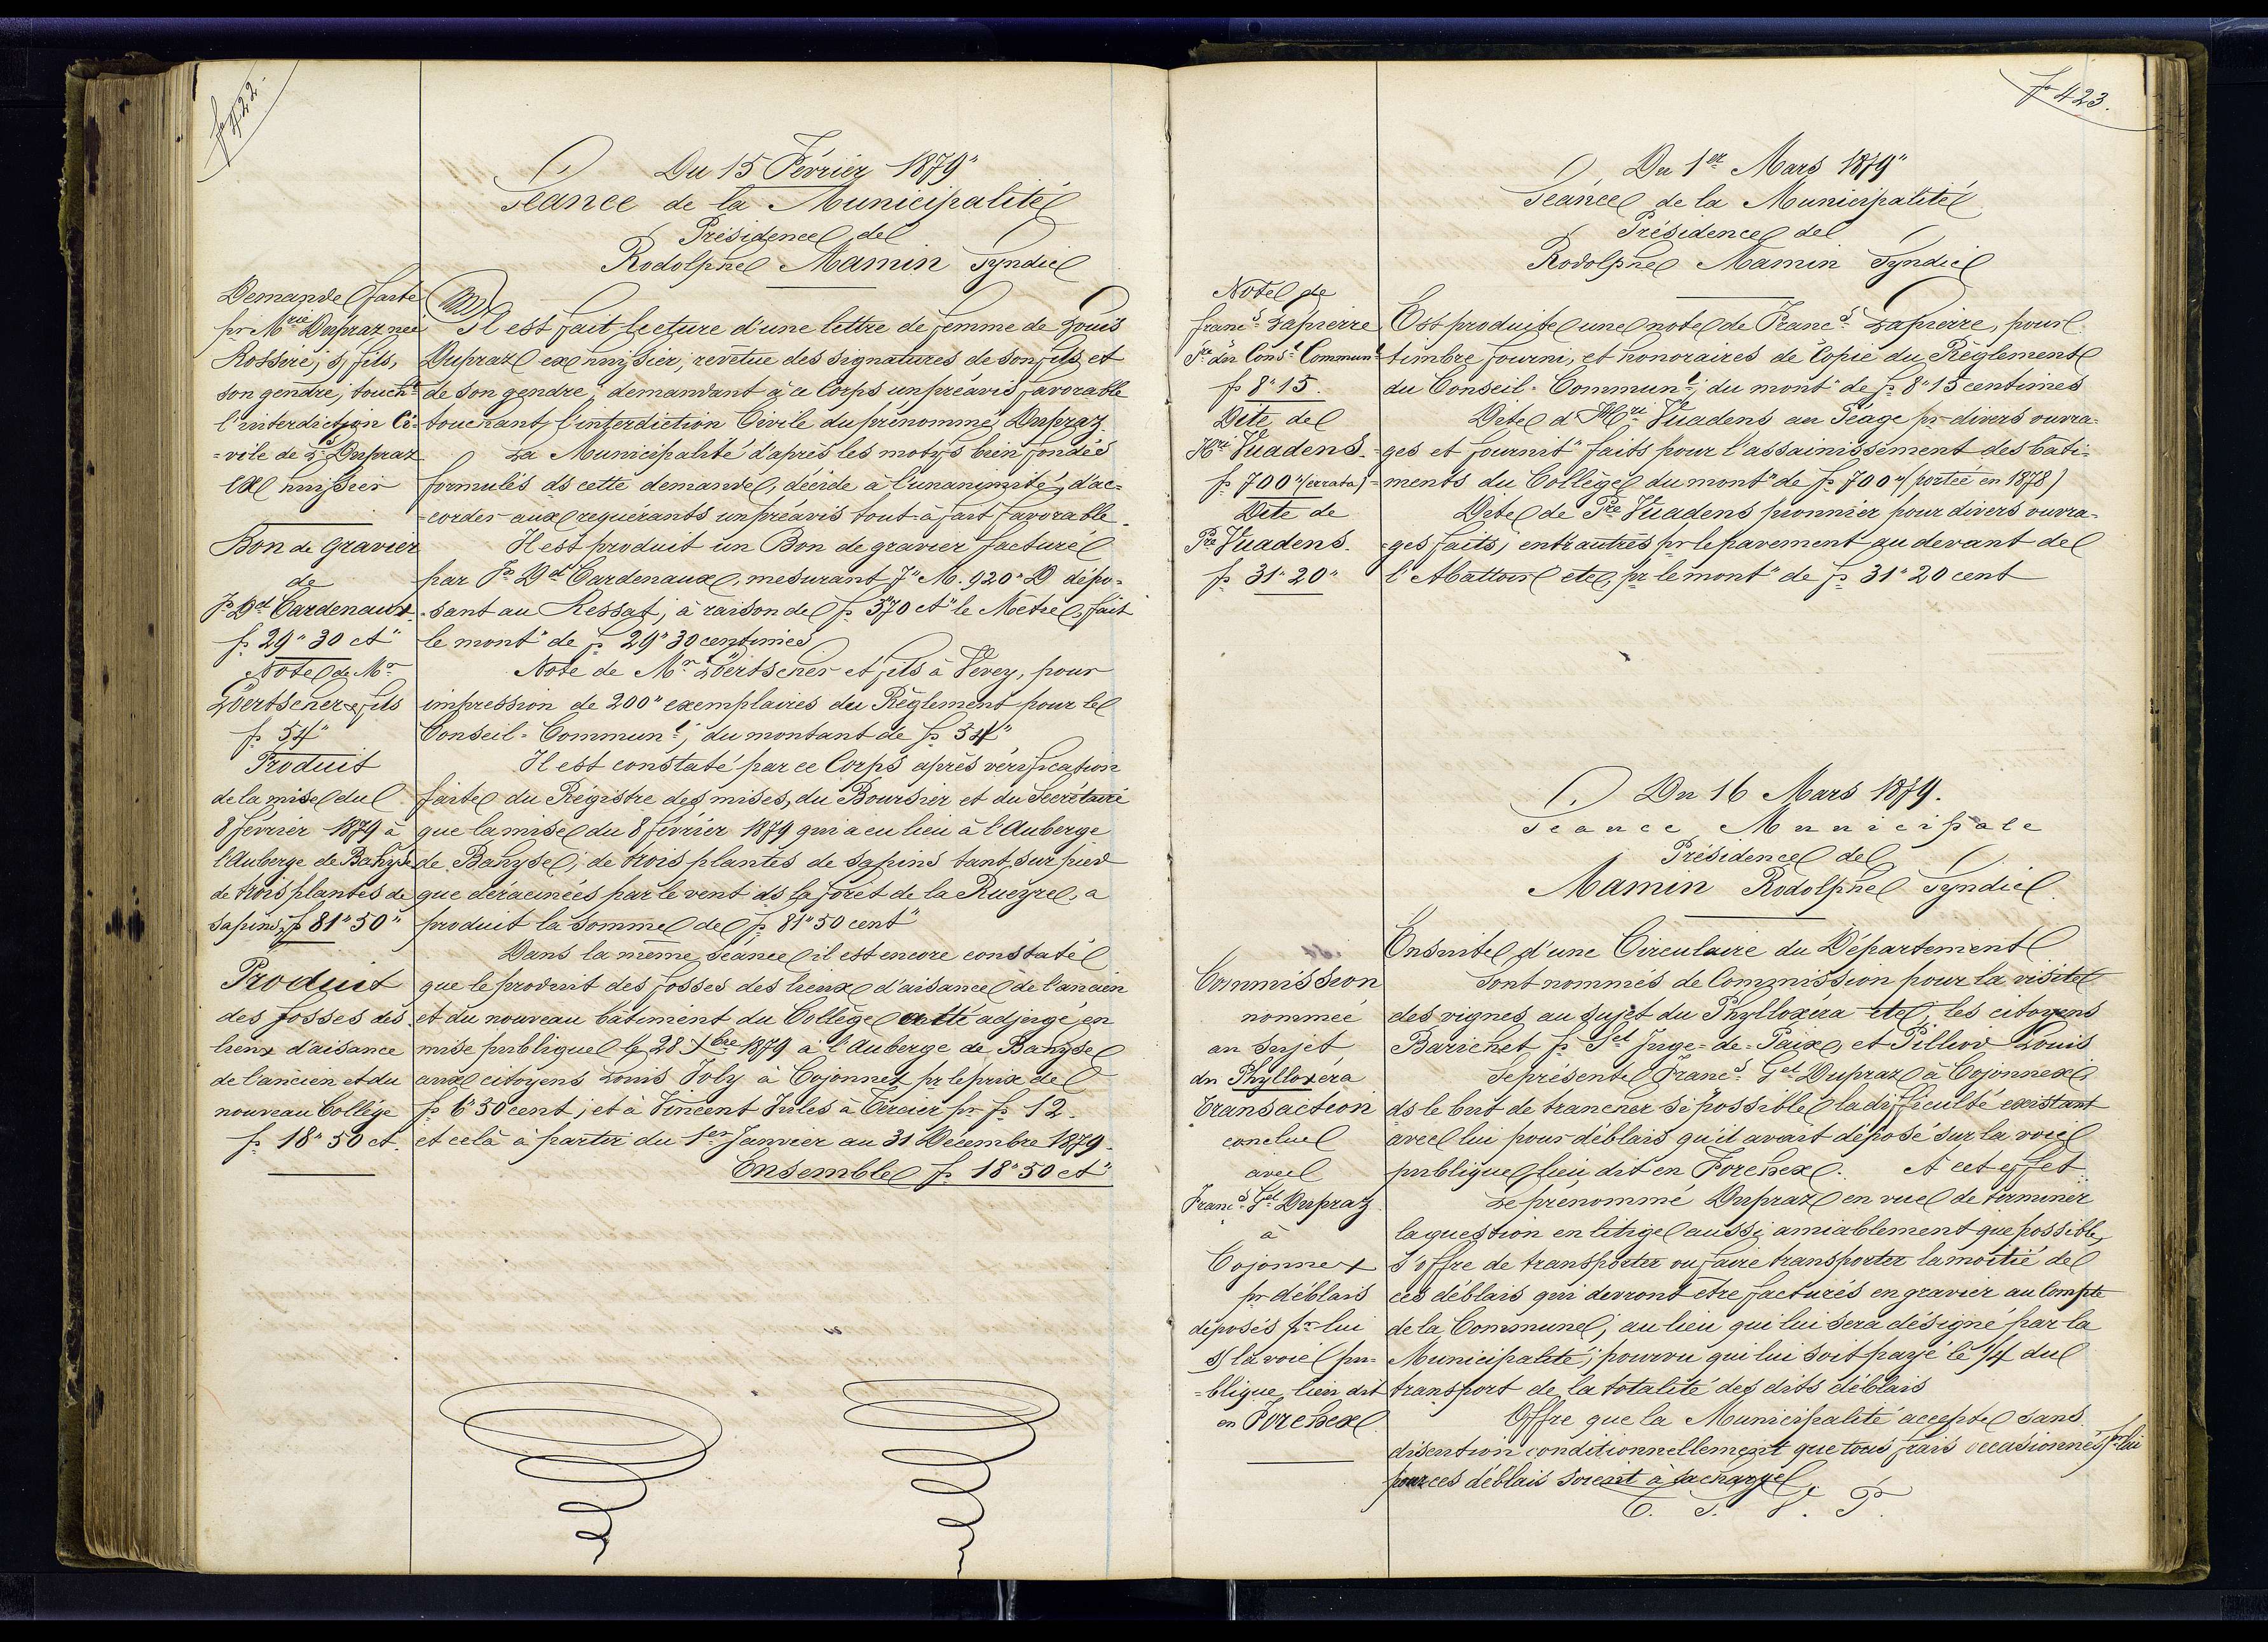 fo 422.
Du 15 Février 1879"
Séance de la Municipalité
Présidence de
Rodolphe Mamin Syndic
Demande faite
pr Mrie Dupraz née
Rossire, s/ fils,
son gendre, toucht
l'interdiction Ci-
=vile de Ls Dupraz
ex huissier
Il est fait lecture d'une lettre de femme de Louis
Dupraz ex huissier, revêtue des signatures de son fils et
de son gendre, demandant à ce Corps un préavis favorable
touchant l'interdiction Civile du prénommé Dupraz.
La Municipalité d'après les motifs bien fondés
formulés ds cette demande, décide à l'unanimité, d'ac-
=corder aux requérants un préavis tout-à-fait favorable.
Bon de gravier
de
Js Dd Cardenaux.
fr 29" 30 ct"
Il est produit un Bon de gravier facturé
par Js Dd Cardenaux, mesurant 7" M. 920" D dépo-
=sant au Ressat, à raison de fr 3"70 ct" le Mètre, fait
le mont" de fr 29" 30 centimes
Note de Mr
Lörtscher & fils
fr 34"
Note de Mr Löertscher et fils à Vevey, pour
impression de 200" exemplaires du Règlement pour le
Conseil-Communl, du montant de fr 34"
Produit
de la mise du
8 février 1879 à
l'Auberge de Bahyse
de trois plantes de
sapins, fr 81" 50"
Il est constaté par ce Corps après vérification
faite du Régistre des mises, du Boursier et du Secrétaire
que la mise du 8 février 1879 qui a eu lieu à l'Auberge
de Bahyse, de trois plantes de sapins tant sur pied
que déracinées par le vent ds la forêt de la Rueyre, a
produit la somme de fr 81" 50 cent"
Produit
des fosses des
lieux d'aisance
de l'ancien et du
nouveau Collége
fr 18" 50 ct.
Dans la même séance il est encore constaté
que le produit des fosses des lieux d'aisance de l'ancien
et du nouveau bâtiment du Collège a été adjugé en
mise publique le 28 Xbre 1879 à l'Auberge de Bahyse
aux citoyens Louis Joly à Cojonnex pr le prix de
fr 6" 50 cent; et à Vincent Jules à Tercier pr fr 12.
et celà à partir du 1er Janvier au 31 Décembre 1879.
Ensemble fr 18" 50 ct"
fo 423.
Du 1er Mars 1879"
Séance de la Municipalité
Présidence de
Rodolphe Mamin Syndic
Note de
Francs Lapierre
Sre du Consl Communl
fr 8" 15.
Est produite une note de Francs Lapierre, pour
timbre fourni, et honoraires de Copie du Règlement
du Conseil-Communl, du mont" de fr 8" 15 centimes
Dite de
Hri Vuadens.
fr 700" (errata)
Dite d'Hri Vuadens au Péage pr divers ouvra-
=ges et fournit" faits pour l'assainissement des bâti-
=ments du Collège du mont" de fr 700" (portée en 1878)
Dite de
Pre Vuadens.
fr 31" 20"
Dite de Pre Vuadens pionnier pour divers ouvra-
=ges faits, entr'autres pr le pavement au devant de
l'Abattoir etc, pr le mont" de fr 31" 20 cent
Du 16 Mars 1879.
Séance Municipale
Présidence de
Mamin Rodolphe Syndic.
Commission
nommée
au sujet
du Phylloxéra
Ensuite d'une Circulaire du Département
Sont nommés de Commission pour la visite
des vignes au sujet du Phylloxéra etc, les citoyens
Barichet fs Sel Juge-de-Paix, et Pilliod Louis
Transaction
conclue
avec
Francs Gel Dupraz
à
Cojonnex
pr déblais
déposés pr lui
s/ la voie pu-
=blique lieu dit
en Forchex
Se présente Francs Gel Dupraz à Cojonnex,
ds le but de trancher si possible la difficulté existant
avec lui pour déblais qu'il avait déposé sur la voie
publique, lieu dit en Forchex. A cet effet
Le prénommé Dupraz en vue de terminer
la question en litige aussi amiablement que possible,
s'offre de transporter ou faire transporter la moitié de
ces déblais qui devront être facturés en gravier au Compte
de la Commune, au lieu qui lui sera désigné par la
Municipalité, pourvu qui lui soit payé le 1/4 du
transport de la totalité des dits déblais
Offre que la Municipalité accepte sans
discution conditionnellement que tous frais occasionnés pr lui
pour ces déblais soient à sa charge
T. S. V. P.